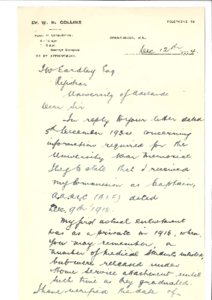 DR. W. R. COLLINS
TELEPHONE 14
Dec 12th
F W Eardley Esq
Registrar
University of Adelaide
Dear Sir
In reply to your letter dated
5th December 1934 concerning
information required for the
University War Memorial
I beg to state that I received
my commission as Captain
A.A.M.C (A.I.F) dated
Dec. 9th 1918.
My first actual enlistment
was as a private in 1916, when,
you may remember, a
number of medical students enlisted
but were released under
Home Service attachment until
such time as they graduated.
I have verified the date of